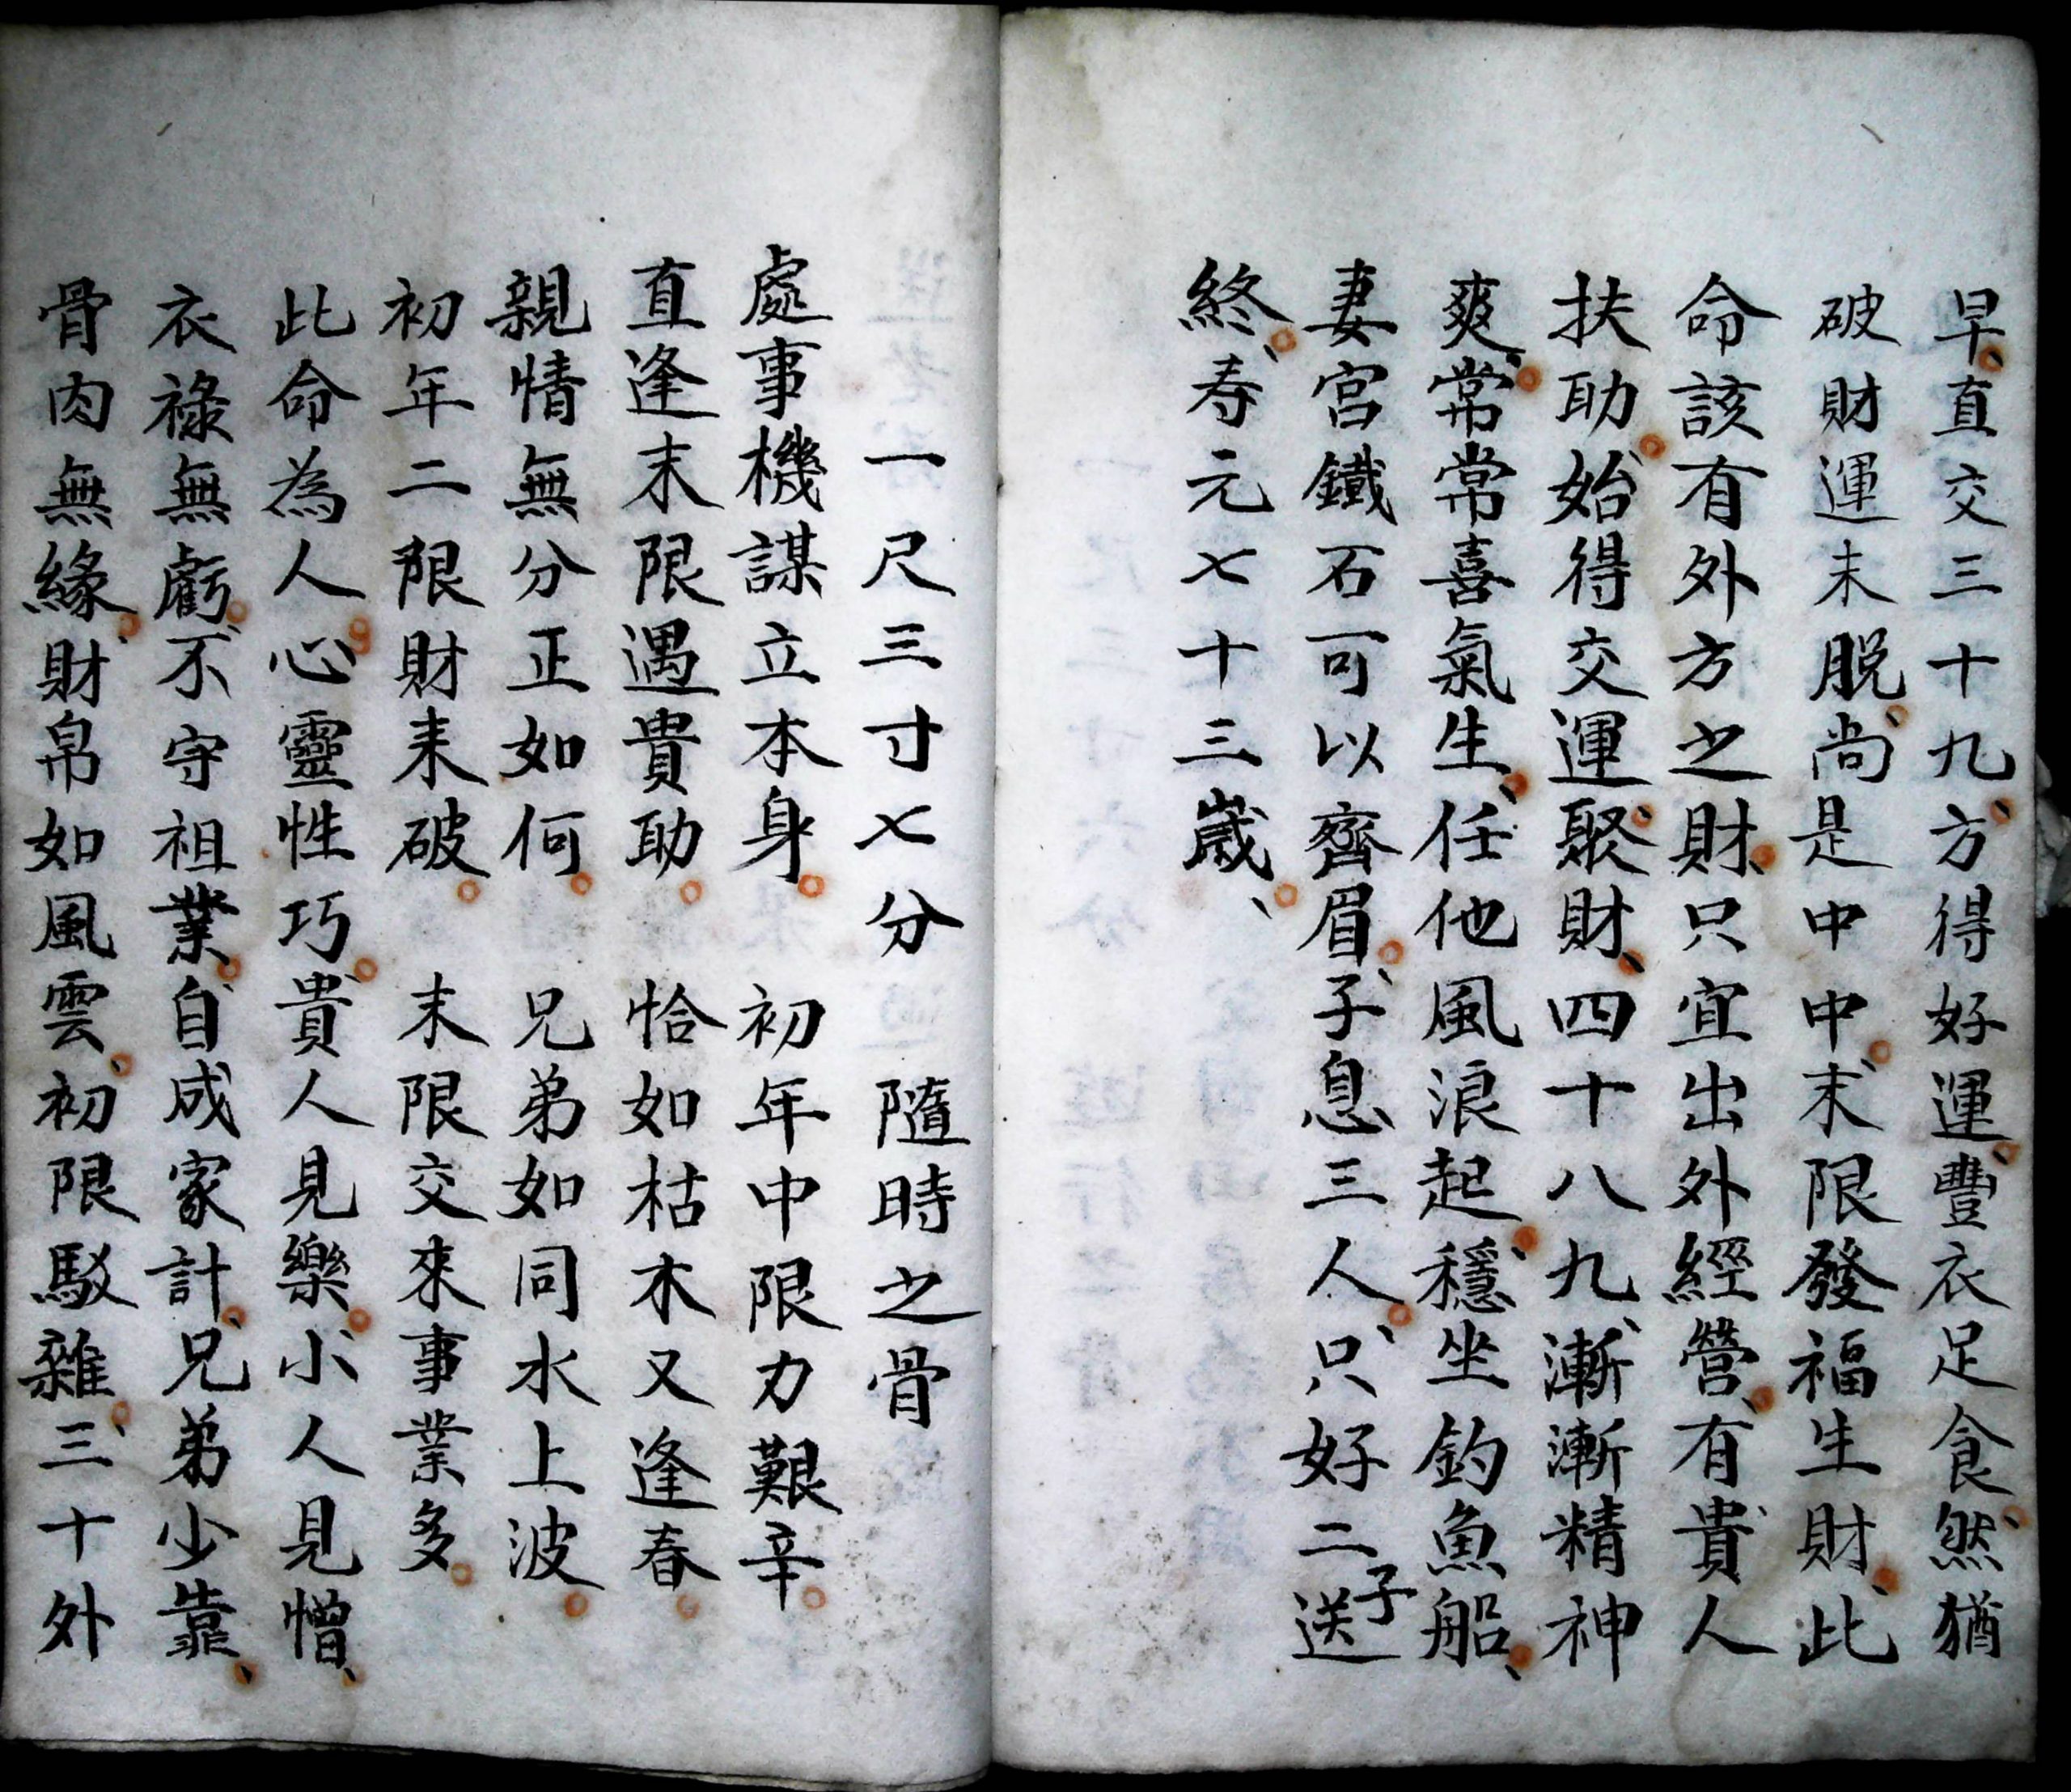 早、直交三十九、方得好運、豐衣足食、然猶
破財運末脱、尚是中中、末限發福生財、此
命該有外方之財、只宜出外經營、有貴人
扶助、始得交運聚財、四十八九、漸漸精神
爽、常常喜氣生、任他風浪起、穩坐釣魚船、
妻宮鐵石可以齊眉、子息三人、只好二子送
終、寿元七十三嵗、
一尺三寸七分 隨時之骨
處事機謀立本身 初年中限力艱辛
直逢末限遇貴助 恰如枯木又逢春
親情無分正如何 兄弟如同水上波
初年二限財耒破 末限交來事業多
此命為人心靈性巧、貴人見樂、小人見憎、
衣祿無虧、不守祖業、自成家計、兄弟少靠、
骨肉無緣、財帛如風雲、初限駁雜、三十外